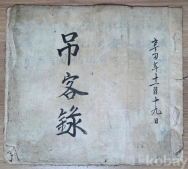 辛丑年十二月十九日
吊客錄
kobay